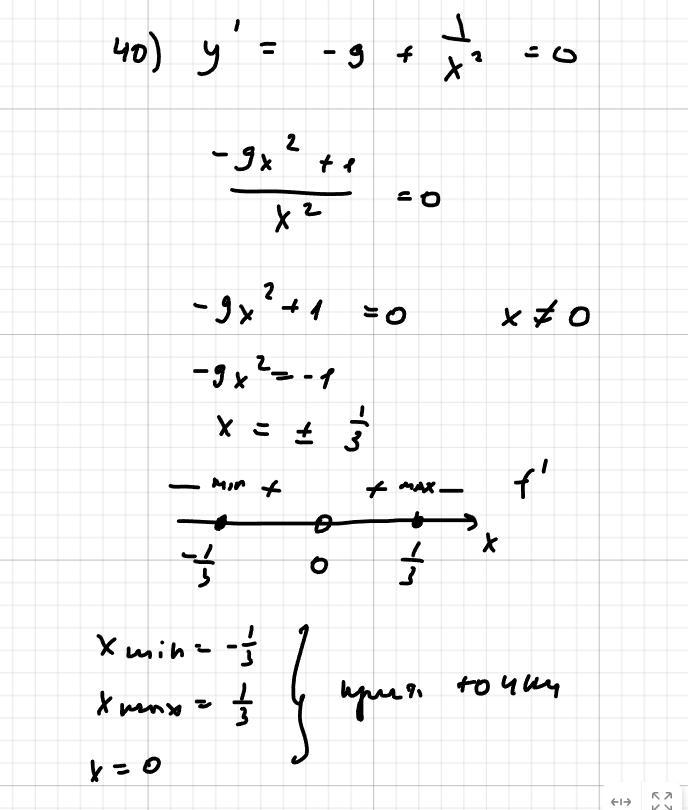 40) y' = -9 + 1/x² = 0
(-9x² + 1)/x² = 0
-9x² + 1 = 0 x ≠ 0
-9x² = -1
x = ± 1/3
— min + + max — f'
-1/3 0 1/3 x
x min = -1/3
x max = 1/3 } крит. точки
x = 0